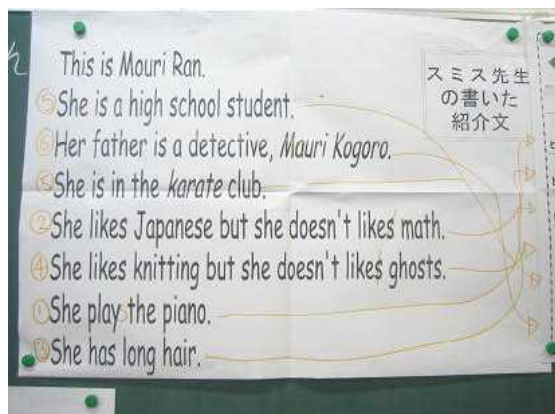 This is Mouri Ran.
⑤She is a high school student.
⑥Her father is a detective, Mauri Kogoro.
⑤She is in the karate club.
②She likes Japanese but she doesn't likes math.
④She likes knitting but she doesn't likes ghosts.
①She plays the piano.
She has long hair.
スミス先生
の書いた
紹介文